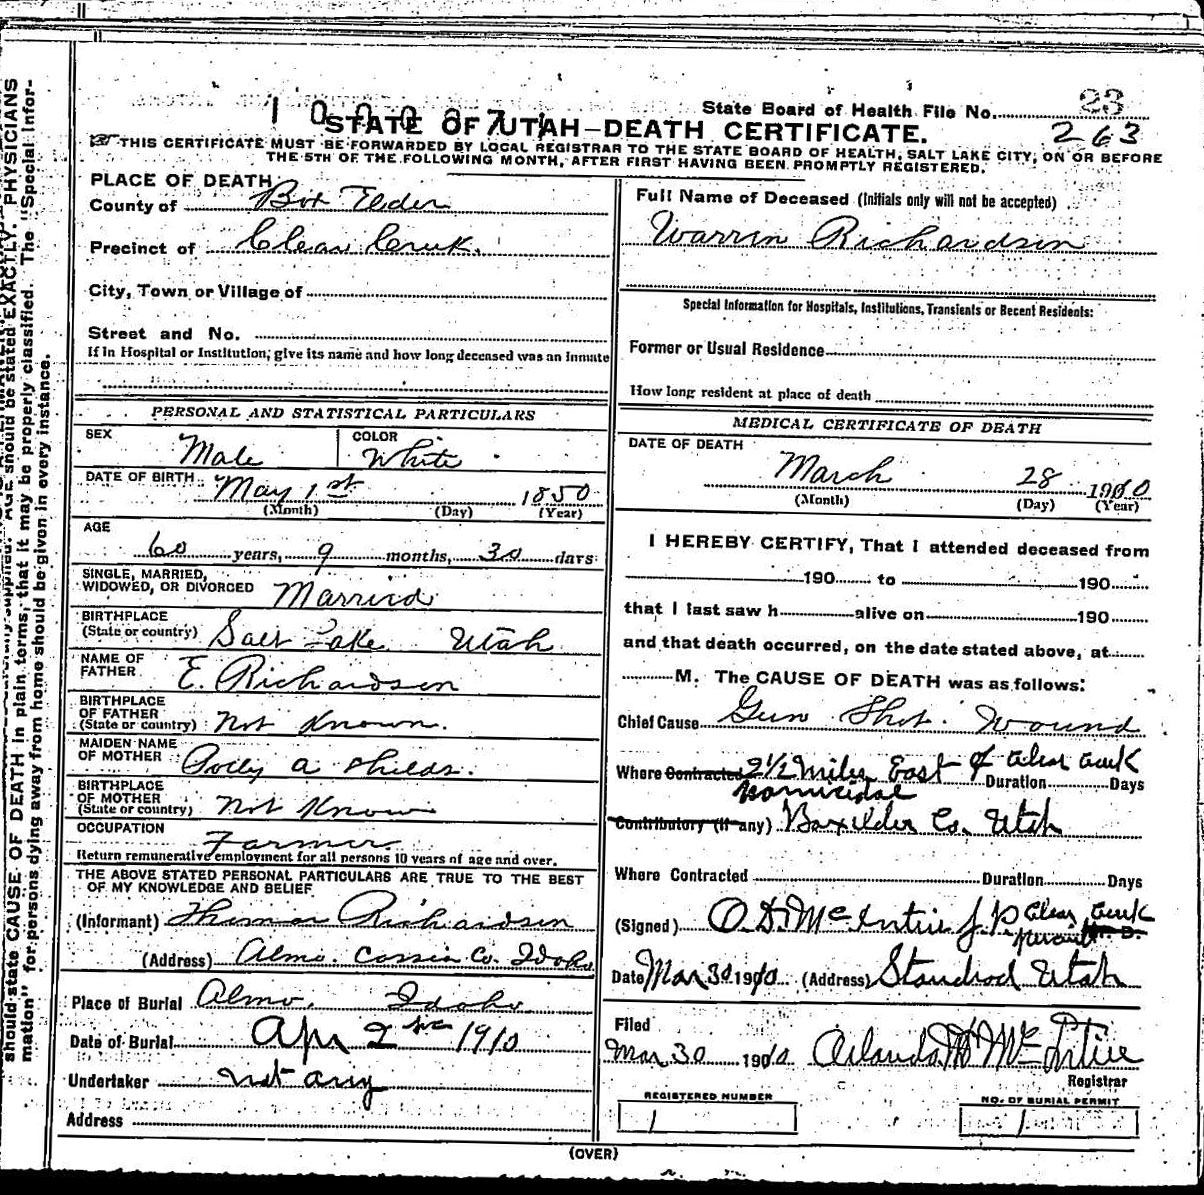 State Board of Health File No. 23
263
STATE OF UTAH—DEATH CERTIFICATE.
THIS CERTIFICATE MUST BE FORWARDED BY LOCAL REGISTRAR TO THE STATE BOARD OF HEALTH, SALT LAKE CITY, ON OR BEFORE
THE 5TH OF THE FOLLOWING MONTH, AFTER FIRST HAVING BEEN PROMPTLY REGISTERED.
PLACE OF DEATH
County of Box Elder
Precinct of Clear Creek.
City, Town or Village of
Street and No.
If in Hospital or Institution, give its name and how long deceased was an Inmate
PERSONAL AND STATISTICAL PARTICULARS
SEX Male COLOR White
DATE OF BIRTH May 1st 1850
(Month) (Day) (Year)
AGE
60 years, 9 months, 30 days
SINGLE, MARRIED,
WIDOWED, OR DIVORCED Married
BIRTHPLACE
(State or country) Salt Lake Utah
NAME OF
FATHER E. Richardson
BIRTHPLACE
OF FATHER
(State or country) Not Known.
MAIDEN NAME
OF MOTHER Polly A Childs.
BIRTHPLACE
OF MOTHER
(State or country) Not Known
OCCUPATION Farmer
Return remunerative employment for all persons 10 years of age and over.
THE ABOVE STATED PERSONAL PARTICULARS ARE TRUE TO THE BEST
OF MY KNOWLEDGE AND BELIEF
(Informant) Richardson
(Address) Almo. Cassia Co. Idaho
Place of Burial Almo, Idaho.
Date of Burial Apr 2 1910
Undertaker not any
Address
Full Name of Deceased (Initials only will not be accepted)
Warrin Richardson
Special Information for Hospitals, Institutions, Transients or Recent Residents:
Former or Usual Residence
How long resident at place of death
MEDICAL CERTIFICATE OF DEATH
DATE OF DEATH
March 28 1910
(Month) (Day) (Year)
I HEREBY CERTIFY, That I attended deceased from
190 to 190
that I last saw h alive on 190
and that death occurred, on the date stated above, at
M. The CAUSE OF DEATH was as follows:
Chief Cause Gun Shot Wound
Where Contracted 2 1/2 Miles East of Clear Creek Duration Days
Homicidal
Contributory (if any) Boxelder Co. Utah
Where Contracted Duration Days
(Signed) O. D. McEntire J. P. Clear Creek
Precinct M. D.
Date Mar 30 1910 (Address) Standrod Utah
Filed
Mar 30 1910 McEntire
Registrar
REGISTERED NUMBER
1
NO. OF BURIAL PERMIT
1
(OVER)
should state CAUSE OF DEATH in plain terms, that it may be properly classified. The "Special Infor-
mation" for persons dying away from home should be given in every instance.